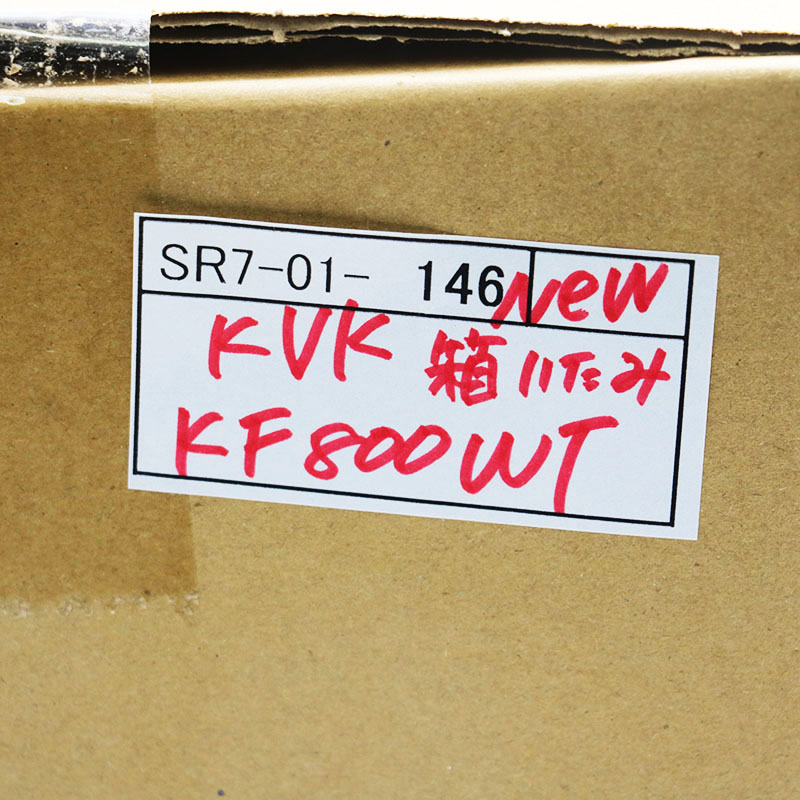 SR7-01- 146 New
KVK 箱いたみ
KF800WT